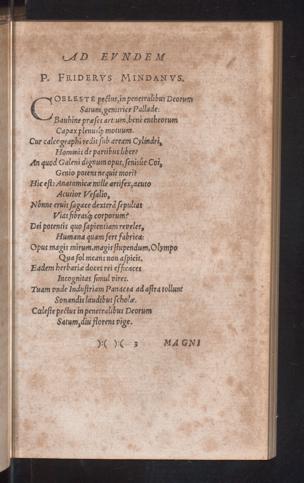 AD EVNDEM
P. FRIDERVS MINDANVS.
COELESTE pectus, in penetralibus Deorum
Satum, genitrice Pallade.
Bauhine præses artium, bene entheorum
Capax plenusq́ motuum.
Cur calcographi redit sub æream Cylindri,
Hominis de partibus liber?
An quod Galeni dignum opus, senisúe Coi,
Genio potens nequit mori?
Hic est Anatomicæ mille artifex, acuto
Acutior Vesalio,
Nónne eruit sagace dexterâ sepultas
Vias fibrasq́ corporum?
Dei potentis quo sapientiam reuelet,
Humana quam fert fabrica:
Opus magis mirum, magis stupendum, Olympo
Qua sol means non aspicit.
Eadem herbariæ doces rei efficaces
Incognitas simul vires.
Tuam vnde Industriam Panacea ad astra tollunt
Sonandis laudibus scholæ.
Cœleste pectus in penetralibus Deorum
Satum, diu florens vige.
):( ):( 3 MAGNI